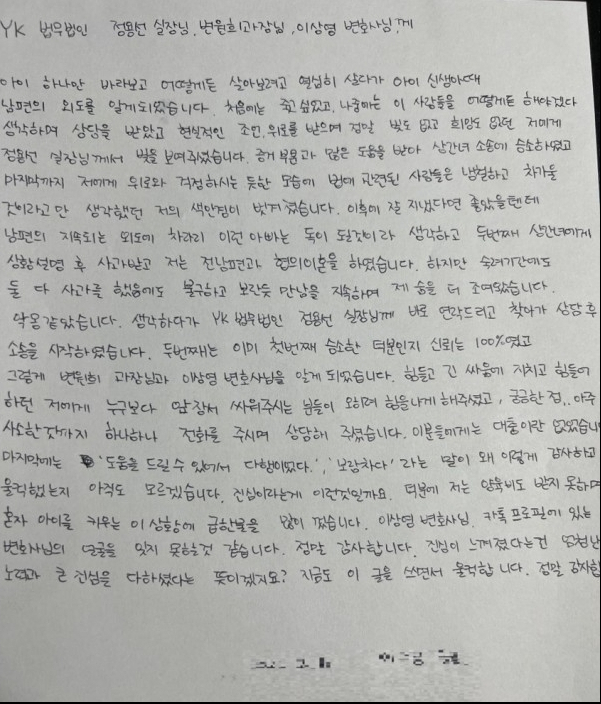 YK 법무법인 정용선 실장님, 변원희과장님, 이상영 변호사님께
아이 하나만 바라보고 어떻게든 살아보려고 열심히 살다가 아이 신생아때
남편의 외도를 알게되었습니다. 처음에는 죽고싶었고, 나중에는 이 사람들을 어떻게든 해야겠다
생각하며 상담을 받았고 현실적인 조언, 위로를 받으며 정말 빛도 없고 희망도 없던 저에게
정용선 실장님께서 빛을 보여주셨습니다. 증거 부분과 많은 도움을 받아 상간녀 소송에 승소하였고
마지막까지 저에게 위로와 걱정하시는 듯한 모습에 법에 관련된 사람들은 냉철하고 차가울
것이라고만 생각했던 저의 색안경이 벗겨졌습니다. 이후에 잘 지냈다면 좋았을텐데
남편의 지속되는 외도에 차라리 이런 아빠는 독이 될것이라 생각하고 두번째 상간녀에게
상황설명 후 사과받고 저는 전남편과 협의이혼을 하였습니다. 하지만 숙려기간에도
둘 다 사과를 했음에도 불구하고 보란듯 만남을 지속하며 제 숨을 더 조여왔습니다.
악몽같았습니다. 생각하다가 YK 법무법인 정용선 실장님께 바로 연락드리고 찾아가 상담 후
소송을 시작하였습니다. 두번째는 이미 첫번째 승소한 덕분인지 신뢰는 100%였고
그렇게 변원희 과장님과 이상영 변호사님을 알게 되었습니다. 힘들고 긴 싸움에 지치고 힘들어
하던 저에게 누구보다 앞장서 싸워주시는 분들이 오히려 힘을나게 해주셨고, 궁금한 점.. 아주
사소한것까지 하나하나 전화를 주시며 상담해 주셨습니다. 이분들에게는 대충이란 없었습니
마지막에는 '도움을 드릴 수 있어서 다행이었다.', '보람차다' 라는 말이 왜 이렇게 감사하고
울컥했는지 아직도 모르겠습니다. 진심이라는게 이런것일까요. 덕분에 저는 양육비도 받지 못하며
혼자 아이를 키우는 이 상황에 급한불을 많이 껐습니다. 이상영 변호사님. 카톡 프로필에 있는
변호사님의 얼굴을 잊지 못할것 같습니다. 정말 감사합니다. 진심이 느껴졌다는건 엄청난
노력과 큰 진심을 다하셨다는 뜻이겠지요? 지금도 이 글을 쓰면서 울컥합니다. 정말 감사합